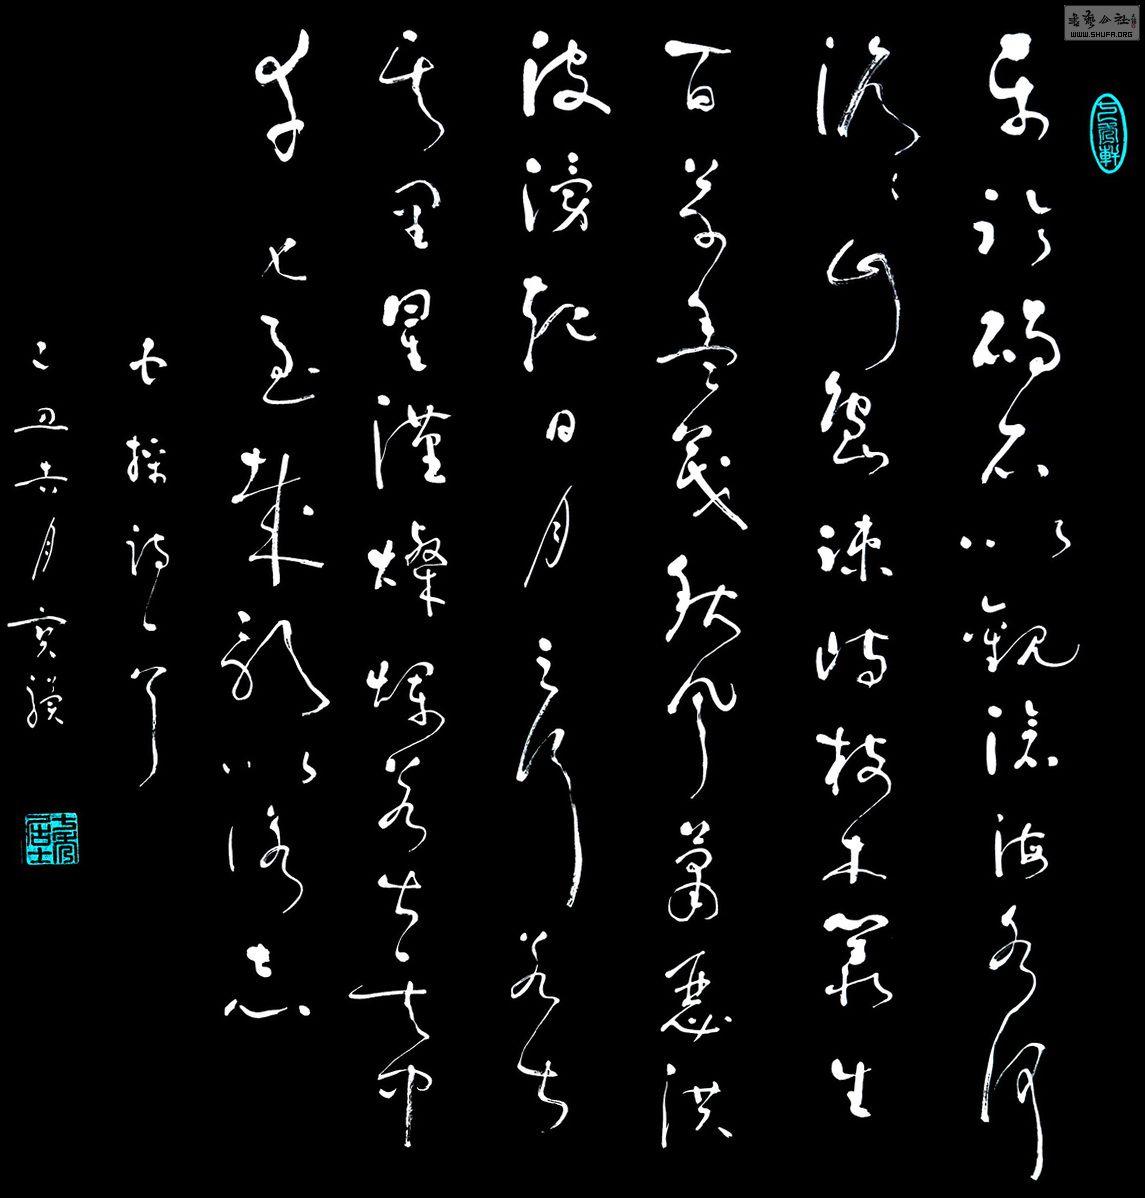 書藝公社
WWW.SHUFA.ORG
東臨碣石以觀滄海水何
澹澹山島竦峙樹木叢生
百草豐茂秋風蕭瑟洪
波湧起日月之行若出
其里星漢燦爛若出其中
幸甚至哉歌以詠志
操詩
己丑六月